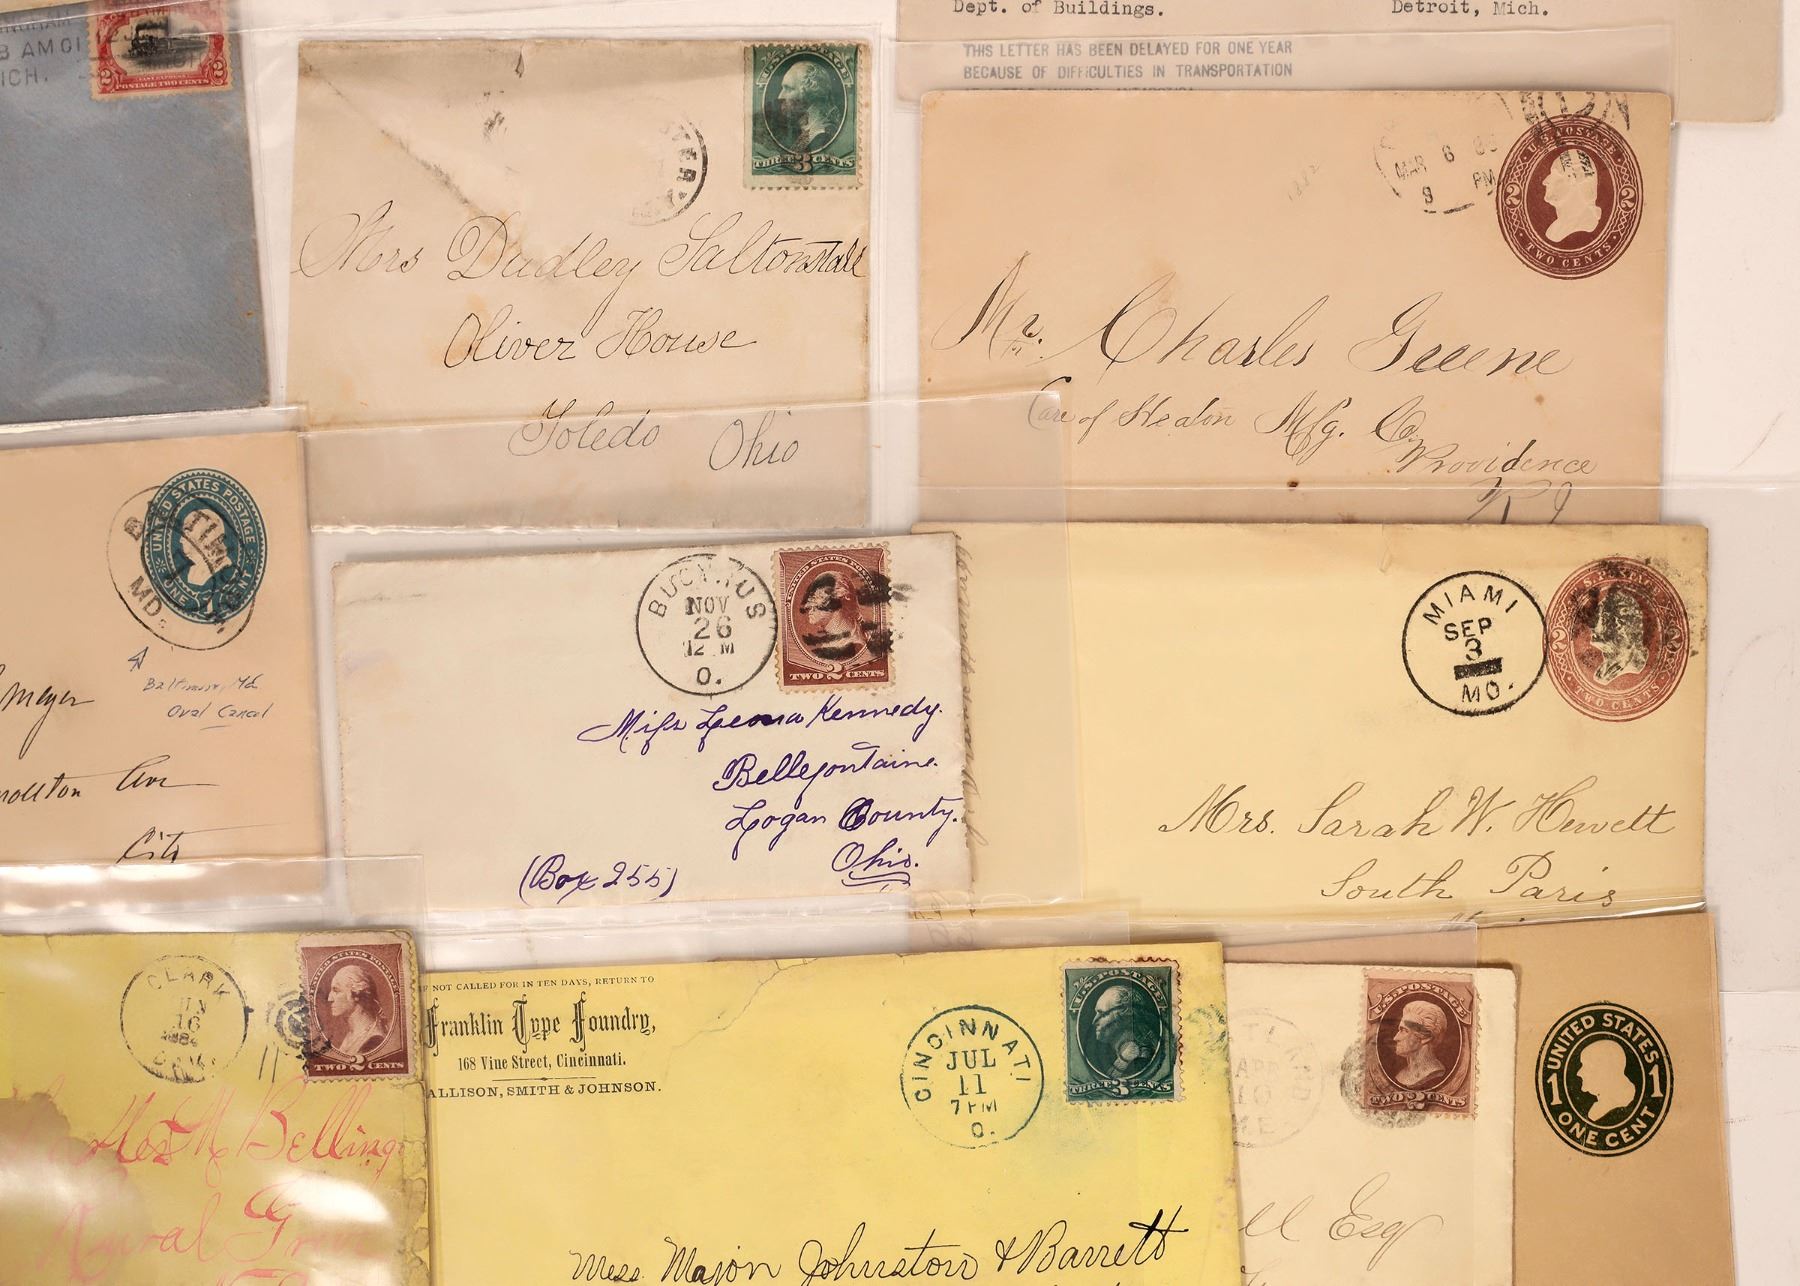 AM 01
MICH.
2 2
FAST EXPRESS
POSTAGE TWO CENTS
U.S. POSTAGE
THREE 3 CENTS
Mrs Dudley Saltonstall
Oliver House
Toledo Ohio
Dept. of Buildings. Detroit, Mich.
THIS LETTER HAS BEEN DELAYED FOR ONE YEAR
BECAUSE OF DIFFICULTIES IN TRANSPORTATION
MAR 6
8 PM
U.S. POSTAGE
2 2
TWO CENTS
Mr. Charles Greene
Care of Heaton Mfg. Co
Providence
R I
BALTIMORE
MD.
UNITED STATES POSTAGE
ONE 1 CENT
Baltimore, Md
Oval Cancel
Meyer
Ave
City
BUCYRUS
NOV
26
12 M
O.
UNITED STATES POSTAGE
TWO 2 CENTS
Miss Leona Kennedy.
Bellefontaine.
Logan County.
Ohio.
(Box 255)
MIAMI
SEP
3
MO.
U.S. POSTAGE
2 2
TWO CENTS
Mrs. Sarah W. Hewett
South Paris
CLARK
16
UNITED STATES POSTAGE
TWO 2 CENTS
M Belling
Rural Grove
IF NOT CALLED FOR IN TEN DAYS, RETURN TO
Franklin Type Foundry,
168 Vine Street, Cincinnati.
ALLISON, SMITH & JOHNSON.
CINCINNATI
JUL
11
7 PM
O.
U.S. POSTAGE
THREE 3 CENTS
Mess Major Johnston & Barrett
APR
10
ME
U.S. POSTAGE
TWO 2 CENTS
ll Esq
UNITED STATES
1 1
ONE CENT